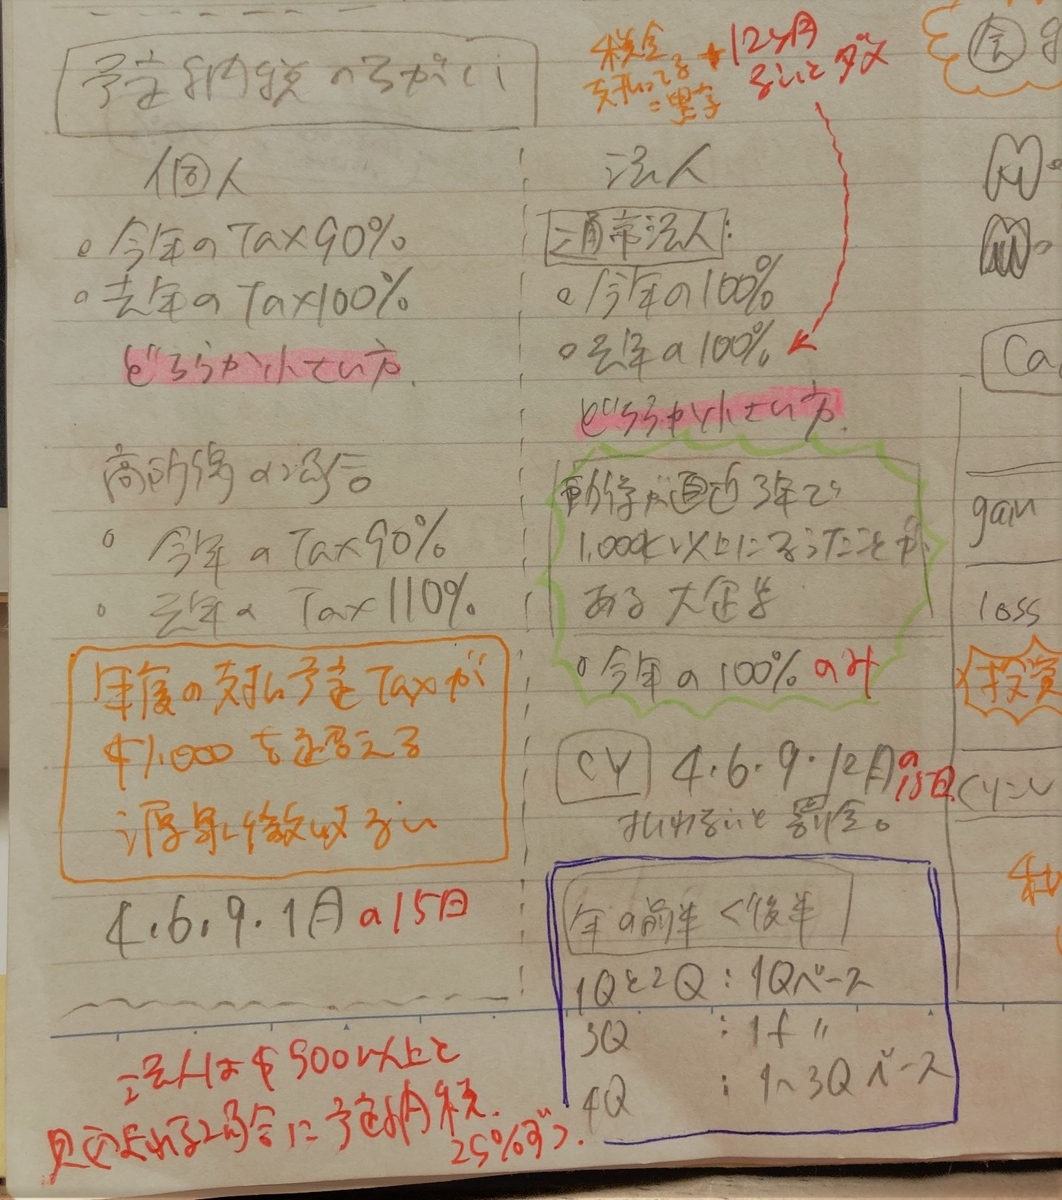 予定納税のちがい
個人
○今年のTax90%
○去年のTax100%
どちらか小さい方.
高所得の場合
○今年のTax90%
○去年のTax110%
年度の支払予定Taxが
$1,000を超える
源泉徴収ない
4.6.9.1月の15日
税金
支払ってる
=黒字
12ヶ月
ないとダメ
法人
通常法人:
○今年の100%
○去年の100%
どちらか小さい方.
所得が直近3年で
1,000k以上になったことが
ある大企業
○今年の100%のみ
CY 4.6.9.12月の15日
払わないと罰金。
年の前半<後半
1Qと2Q:1Qベース
3Q:1f〃
4Q:1~3Qベース
法人は$500以上と
見込まれる場合に予定納税.
25%ずつ.
会
Ca
gain
loss
投資